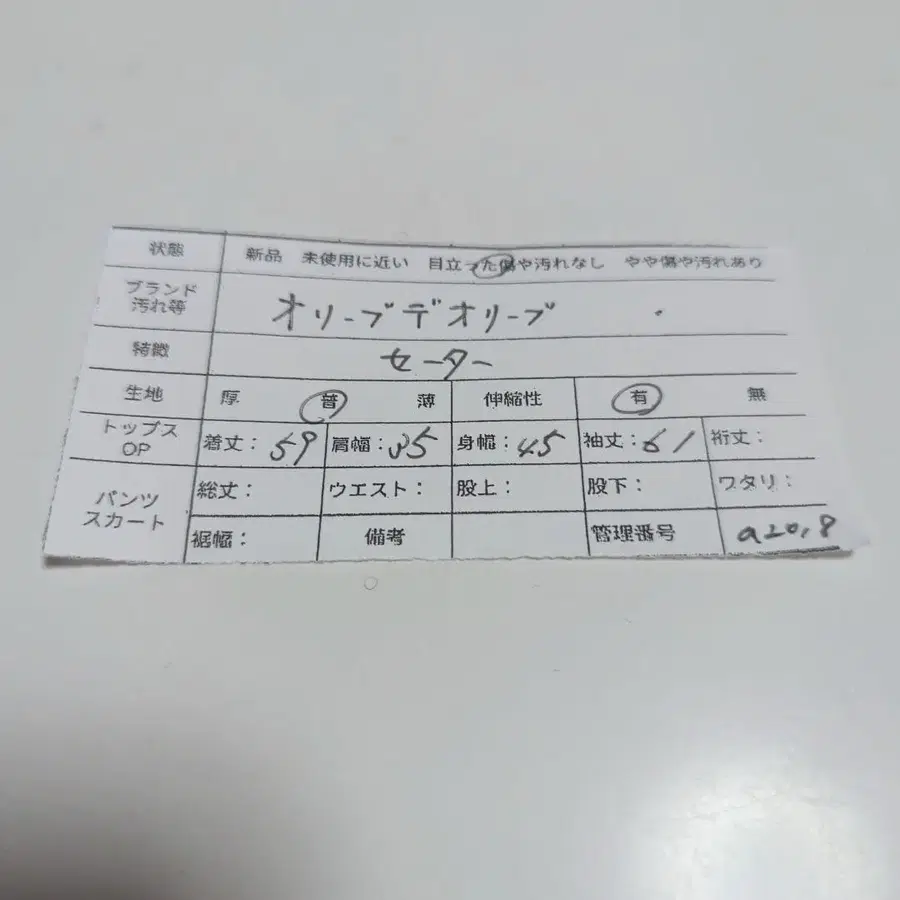 状態 新品 未使用に近い 目立った傷や汚れなし やや傷や汚れあり
ブランド
汚れ等 オリーブデオリーブ
特徴 セーター
生地 厚 普 薄 伸縮性 有 無
トップス
OP 着丈：59 肩幅：35 身幅：45 袖丈：61 裄丈：
パンツ
スカート 総丈： ウエスト： 股上： 股下： ワタリ：
裾幅： 備考 管理番号 a20,8